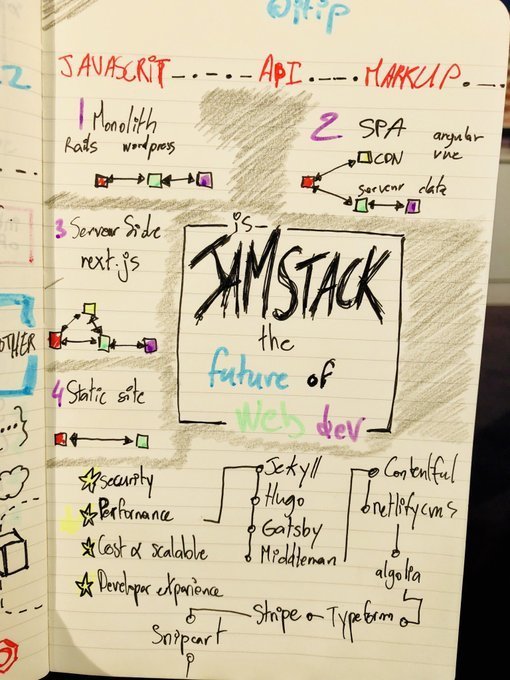 JAVASCRIT API MARKUP
1 Monolith
Rails wordpress
2 SPA
angular
vue
CDN
serveur data
3 Serveur Side
next.js
4 Static site
js
JAMSTACK
the
future of
web dev
OTHER
security
Performance
Cost & scalable
Developer experience
Jekyll
Hugo
Gatsby
Middleman
Contentful
netlifycms
algolia
Typeform
Stripe
Snipcart